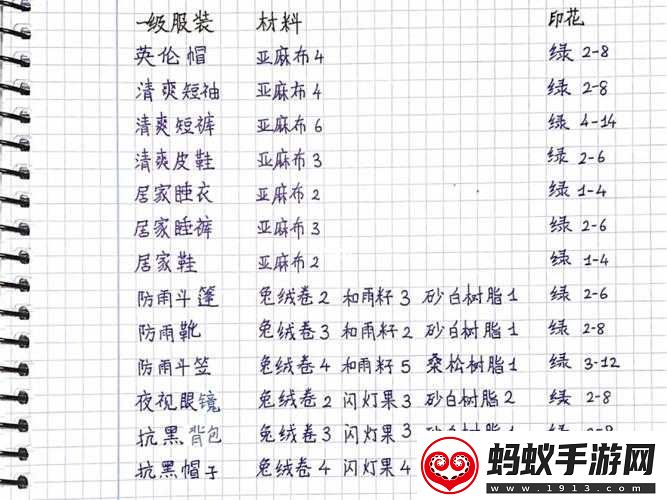 一级服装 材料 印花
英伦帽 亚麻布4 绿 2-8
清爽短袖 亚麻布4 绿 2-8
清爽短裤 亚麻布6 绿 4-14
清爽皮鞋 亚麻布3 绿 2-6
居家睡衣 亚麻布2 绿 1-4
居家睡裤 亚麻布3 绿 2-6
居家鞋 亚麻布2 绿 1-4
防雨斗篷 兔绒卷2 和雨籽3 砂白树脂1 绿 2-6
防雨靴 兔绒卷3 和雨籽2 砂白树脂1 绿 2-8
防雨斗笠 兔绒卷4 和雨籽5 桑松树脂1 绿 3-12
夜视眼镜 兔绒卷2 闪灯果3 砂白树脂2 绿 2-8
抗黑背包 兔绒卷3 闪灯果3
抗黑帽子 兔绒卷4 闪灯果4
蚂蚁手游网
www.1913.com